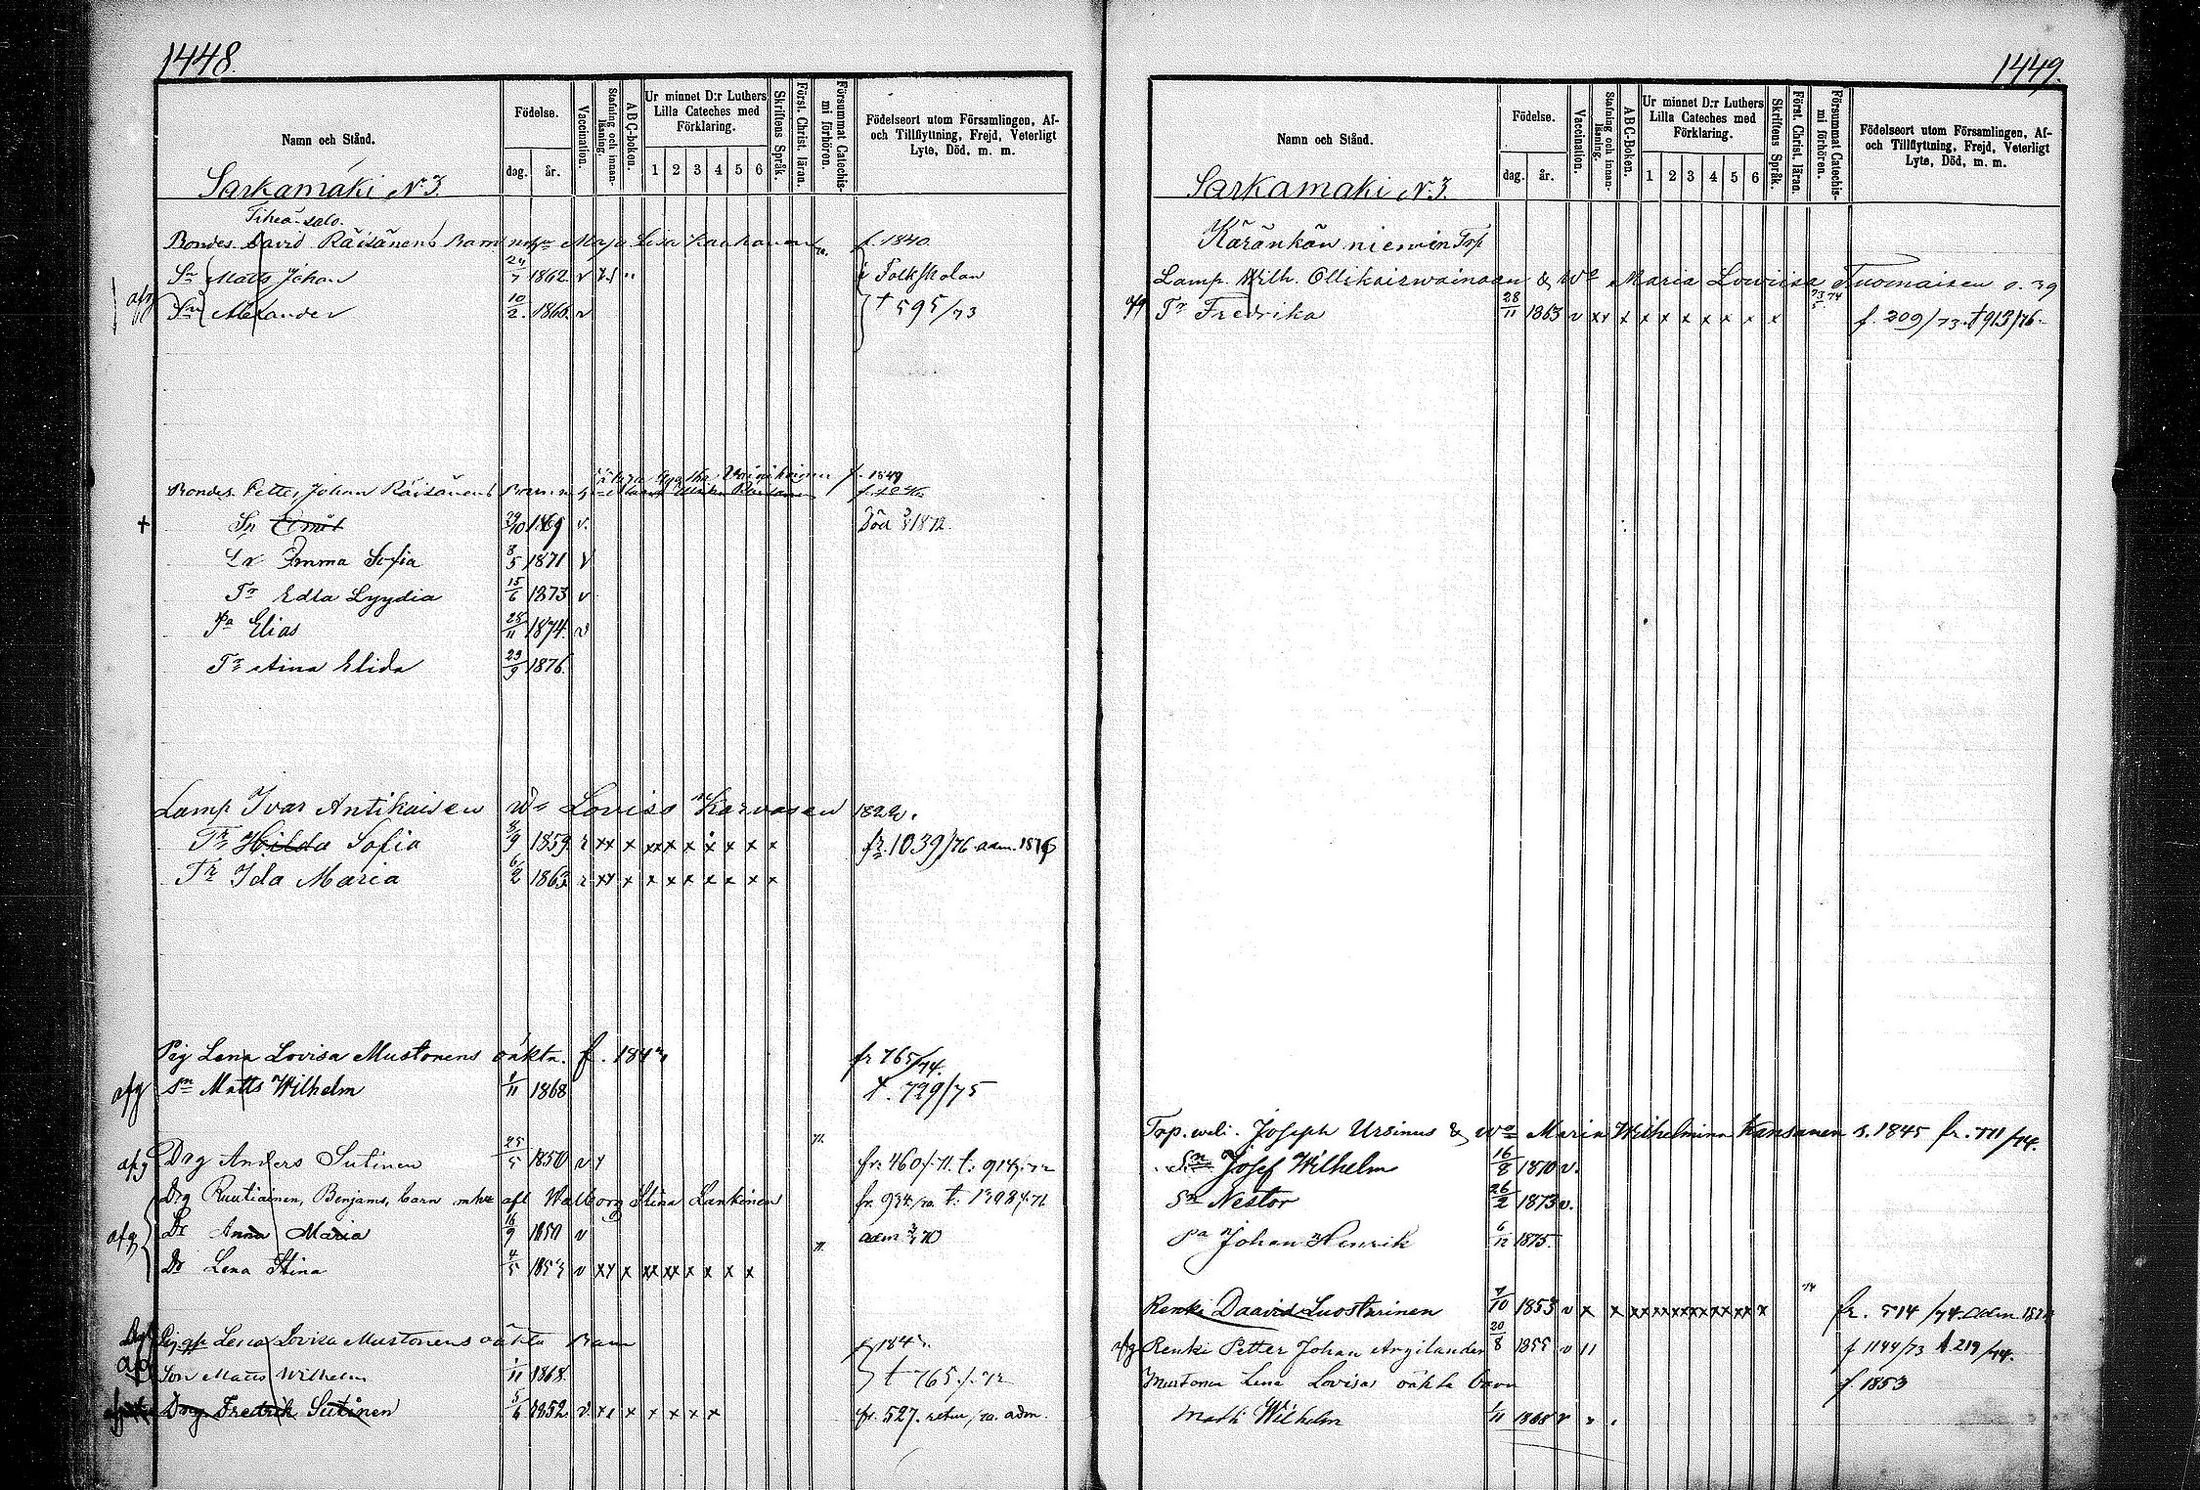 1448.
Namn och Stånd.
Födelse.
dag.
år.
Vaccination.
Stafning och innan-läsning.
ABC-boken.
Ur minnet D:r Luthers Lilla Cateches med Förklaring.
1 2 3 4 5 6
Skriftens Språk.
Först. Christ. läran.
Försummat Catechis-mi förhören.
Födelseort utom Församlingen, Af- och Tillflyttning, Frejd, Veterligt Lyte, Död, m. m.
Sarkamäki N:3.
Tihea-salo.
Bondes. David Räisänens Barn Maja Lisa f. 1840.
Sn Matts Johan 24/7 1862. v Folkskolan
afg Sn Alexander 10/2. 1866. v † 595/73
f. 1849
Bondes. Petter Johan Räisänens Barn
† Sn 29/10 1869 v. Död 1872
Dr Imma Sofia 8/5 1871 v
Tr Edla Lyydia 15/6 1873 v
Pa Elias 28/11 1874. v
Tr Aina Elida 29/9 1876.
Lamp Ivar Antikaisen Wa Lovisa Karvasen 1822.
Tr Hilda Sofia 8/9 1859. v xx x xx x x x x x x fr. 1039/76. adm. 1876
Tr Ida Maria 6/2 1863. v xx x x x x x x x x
Pig Lena Lovisa Mustonens oäkta. f. fr 765/74.
afg Sn Matts Wilhelm 1/11 1868 t. 729/75
afg Drg Anders Sutinen 25/5 1850 v fr. 460/71. t. 914/72
Drg Ruutiainen, Benjams, barn mhu afl Walborg Stina Lankinen fr. 934/70. t.
afg Dr Anna Maria 16/9 1850 v adm 70
Dr Lena Stina 4/5 1853 v xx x xx xx x x x x
Pig Lena Lovisa Mustonens oäkta Barn
afg Son Matts Wilhelm 1/11 1868. t 765/72
Drg Fredrik Sutinen 5/6 1852. v xx x x x x x fr. 527. retur/70. adm.
1449.
Namn och Stånd.
Födelse.
dag.
år.
Vaccination.
Stafning och innan-läsning.
ABC-Boken.
Ur minnet D:r Luthers Lilla Cateches med Förklaring.
1 2 3 4 5 6
Skriftens Språk.
Först. Christ. läran.
Försummat Catechis-mi förhören.
Födelseort utom Församlingen, Af- och Tillflyttning, Frejd, Veterligt Lyte, Död, m. m.
Sarkamäki N:3.
Käränkän niemin Trp
Lamp. Wilh. Ollikaisvainaan & Wa Maria Lowiisa Tuomaisen s. 39
afg Tr Fredrika 28/11 1863 v xx x x x x x x x x f. 209/73. t 913/76.
Trp. weli. Joseph Ursinus & Wa Maria Wilhelmina Kansanen s. 1845 fr. 711/74.
Sn Josef Wilhelm 16/8 1870 v.
Sn Nestor 26/2 1873 v.
Pa Johan Henrik 6/12 1875.
Renki Daavid Luostarinen 7/10 1853 v x x xx xx xx xx xx x fr. 514/74.
afg Renki Petter Johan Argilander 20/8 1855 v 11 f 1144/73 t. 219/74.
Mustonen Lena Lovisas oäkta barn f. 1853
Matti Wilhelm 1/11 1868 v